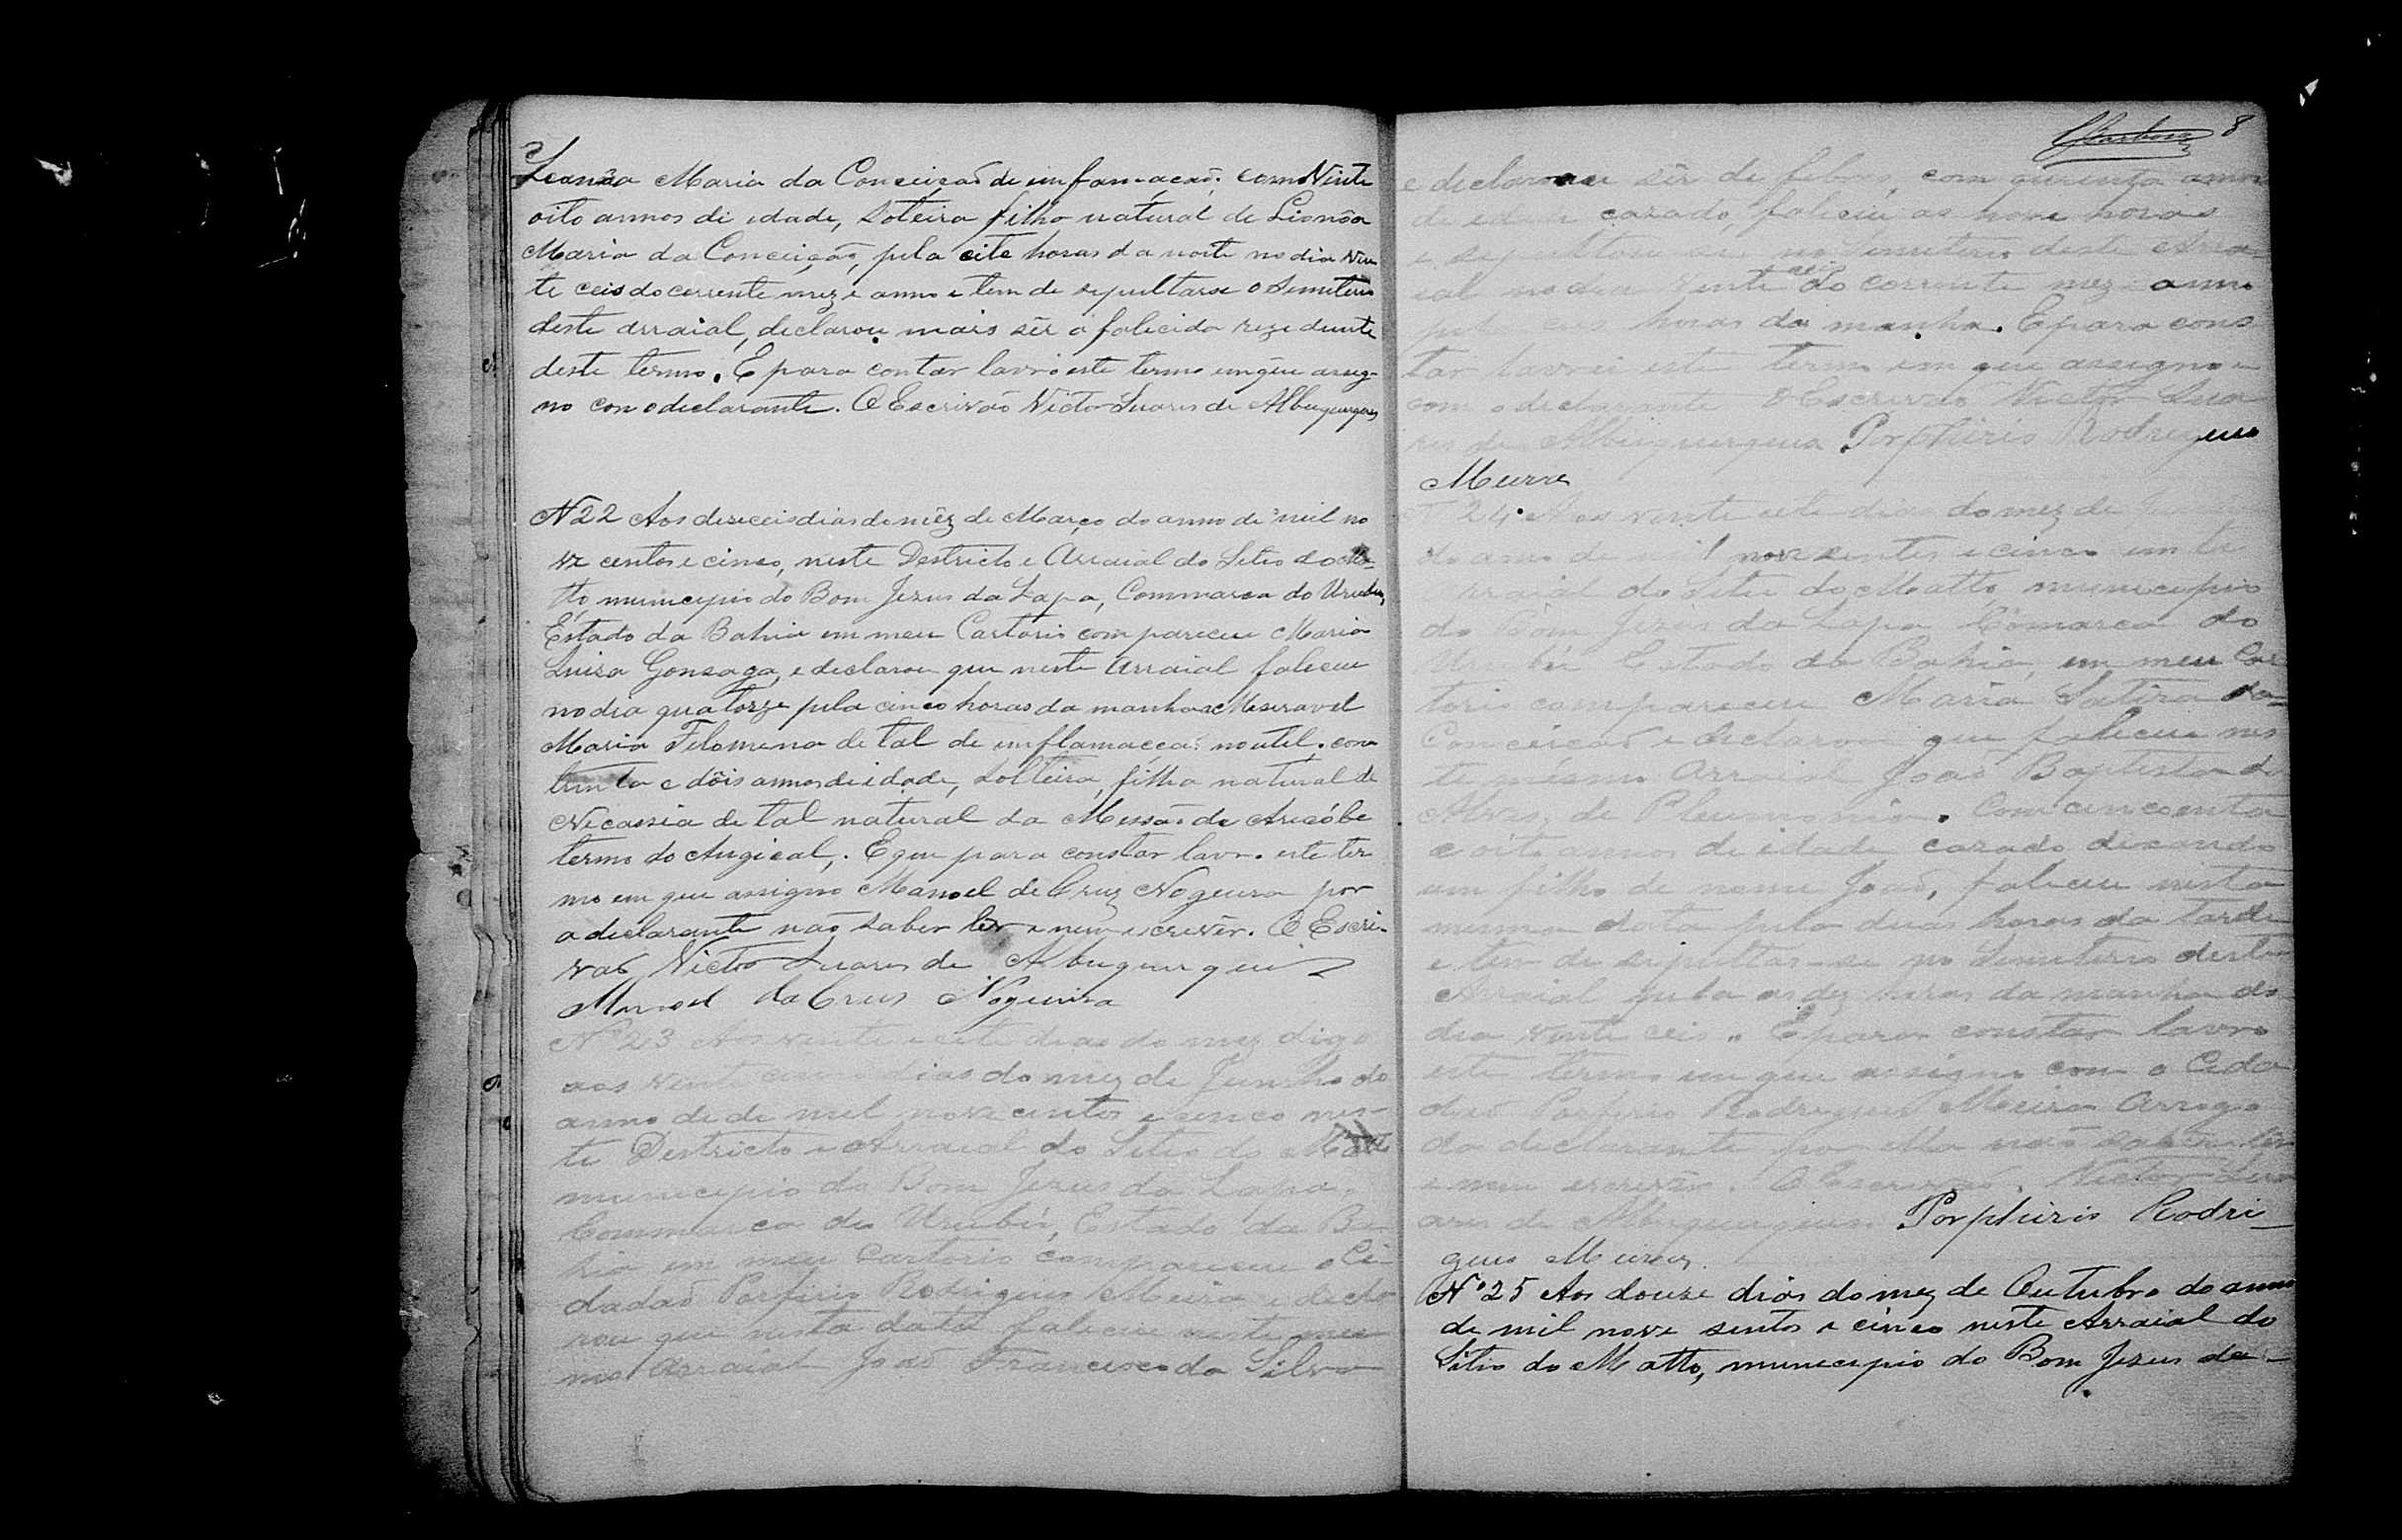 Leonôa Maria da Conceiçaõ de imfamaçaõ. com Vinte
oito annos di idade, soteira filha natural de Lionôa
Maria da Conceiçaõ, pela oite horas da noite no dia vin
te ceis do corrente mez e anno e tem de sepultarse o Semiterio
deste arraial, declarou mais sêr a falecida rezedente
deste termo. E para contar lavro este termo em que asig-
no con o declarante. O Escrivão Victor Suares de Albuquerques
N 22 Aos deseceis dias do mêz de Março do anno de mil no
ve centos e cinco, neste Destricto e Arraial do Sitio do Ma-
tto, municipio do Bom Jezus da Lapa, Commarca do Urubu,
Estado da Bahia em meu Cartorio compareceu Maria
Luisa Gonsaga, e declarou que neste Arraial faleceu
no dia quatorze pela cinco horas da manhã a Meseravel
Maria Filomena de tal de imflamaçça. no util. com
trinta e dôis annos de idade, solteira, filha natural de
Nicassia de tal natural da Messaõ de Aricóbe
termo do Angical,. E que para constar lavr. este ter
mo em que assigno Manoel de Cruz Nogeura por
a declarante naõ saber ler e nem escrevêr. O Escri-
vaõ Victor Suares de Albuquerques
Manoel da Crus Nogueira
Nº 23 Aos vinte e cete dias do mez digo
aos vinte cinco dias do mêz de Junho do
anno de de mil nove centos e cinco nes-
te Destricto e Arraial do Sitio do Matto
municipio do Bom Jezus da Lapa,
Commarca do Urubú, Estado da Ba-
hia em meu Cartorio compareceu o Ci-
dadaõ Porfirio Rodrigues Meira e decla
rou que nesta data faleceu neste mes
mo arraial Joaõ Francisco da Silva
8
e declarou sêr de febres, com
de idade cazado, faleceu as nove horas
e no Semiterio deste Arra-
ial no dia vinte do corrente mez e anno
pela ceis horas da manhã. E para cons
tar lavrei este termo em que assigno e
com o declarante O Escrivaõ Victor Sua
res de Albuquerques Porphirio Rodrigues
Meira
Nº 24. Aos vinte cete dias do mez de
do anno de mil nove sentos e cinco em
Arraial do Sitio do Matto, municipio
do Bom Jezus da Lapa Cômarca do
Urubú Estado da Bahia, em meu Car
torio compareceu Maria Satira da
Conceiçaõ e declarou que faleceu nes
te mêsmo Arraial Joaõ Baptista da
Alves, de Pleumonia. Com cincoenta
e oito annos de idade cazado deixando
um filho de nome Joaõ, faleceu nista
mesma data pela duas horas da tarde
e tem de sipultar-se no Semiterio deste
Arraial pela as dez horas da manhã do
dia vinte ceis. E para constar lavro
este termo em que assigno com o Cida
daõ Porfirio Rodrigues Meira Arrogo
da declarante por ella naõ saber ler
e nem escrevêr. O Escrivaõ. Victor Su
ares de Albuquerques. Porphirio Rodri-
gues Meira
Nº 25 Aos douze dias do mez de Outubro do anno
de mil nove sentos e cinco neste Arraial do
Sitio do Matto, municipio do Bom Jezus da-